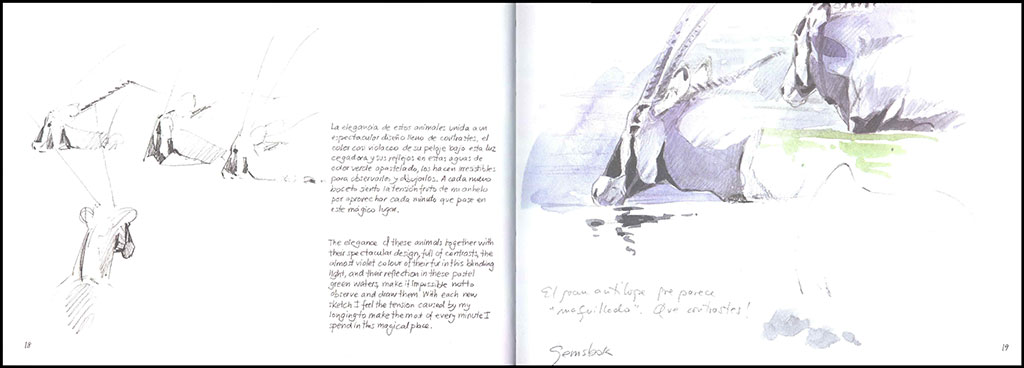 La elegancia de estos animales unida a un
espectacular diseño lleno de contrastes, el
color casi violaceo de su pelaje bajo esta luz
cegadora y sus reflejos en estas aguas de
color verde apastelado, los hacen irresistibles
para observarles y dibujarlos. A cada nuevo
boceto siento la tensión fruto de mi anhelo
por aprovechar cada minuto que pase en
este mágico lugar.
The elegance of these animals together with
their spectacular design, full of contrasts, the
almost violet colour of their fur in this blinding
light, and their reflection in these pastel
green waters, make it impossible not to
observe and draw them. With each new
sketch I feel the tension caused by my
longing to make the most of every minute I
spend in this magical place.
18
El gran antílope parece
"maquillado". Que contrastes!
Gemsbok
19